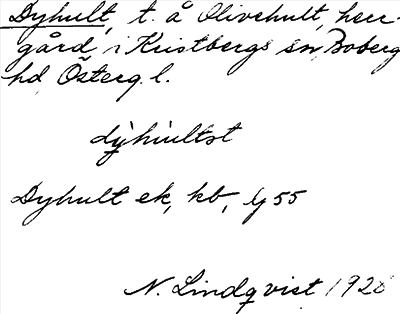 Dyhult, t. å Olivehult, herr-
gård, i Kristbergs sn, Boberg
hd, Österg. l.
Dyhult ek, kb,
N. Lindqvist 1928